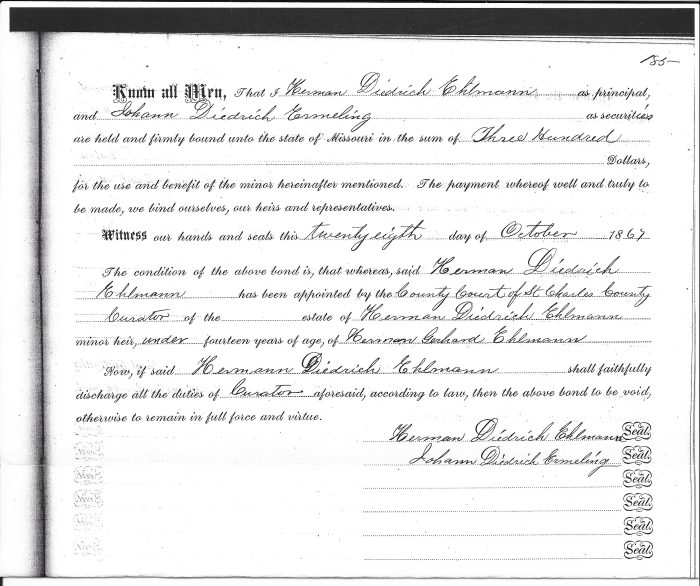 185
Know all Men, That I Herman Diedrich Ehlmann as principal,
and Johann Diedrich Ermeling as securities
are held and firmly bound unto the state of Missouri in the sum of Three Hundred
Dollars,
for the use and benefit of the minor hereinafter mentioned. The payment whereof well and truly to
be made, we bind ourselves, our heirs and representatives.
Witness our hands and seals this twenty eigth day of October 1867
The condition of the above bond is, that whereas, said Herman Diedrich
Ehlmann has been appointed by the County Court of St Charles County
Curator of the estate of Herman Diedrich Ehlmann
minor heir, under fourteen years of age, of Herman Gerhard Ehlmann
Now, if said Hermann Diedrich Ehlmann shall faithfully
discharge all the duties of Curator aforesaid, according to law, then the above bond to be void,
otherwise to remain in full force and virtue.
Herman Diedrich Ehlmann Seal.
Johann Diedrich Ermeling Seal.
Seal.
Seal.
Seal.
Seal.